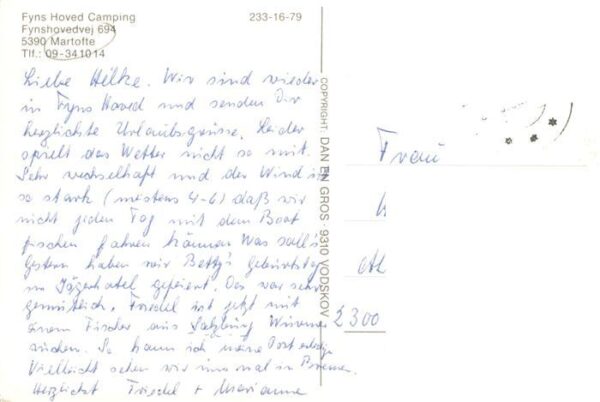 Fyns Hoved Camping
Fynshovedvej 694
5390 Martofte
Tlf.: 09-341014
233-16-79
Liebe Hilke. Wir sind wieder
in Fyns Hoved und senden Dir
herzlichste Urlaubsgrüsse. Leider
spielt das Wetter nicht so mit.
Sehr wechselhaft und der Wind ist
so stark (meistens 4-6) daß wir
nicht jeden Tag mit dem Boot
fischen fahren können Was soll's
Gestern haben wir Betty's Geburtstag
im Jägerhotel gefeiert. Das war sehr
gemütlich. Friedel ist jetzt mit
einem Fischer aus Salzburg Würmer
suchen. So kann ich meine Post
Vielleicht sehen wir uns mal in Bremen.
Herzlichst Friedel + Marianne
COPYRIGHT: DAN EN GROS · 9310 VODSKOV
Frau
2300